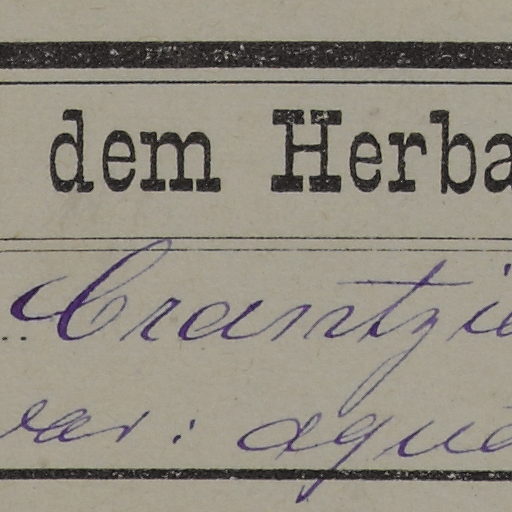 dem Herba
Crantzie
var: aqua